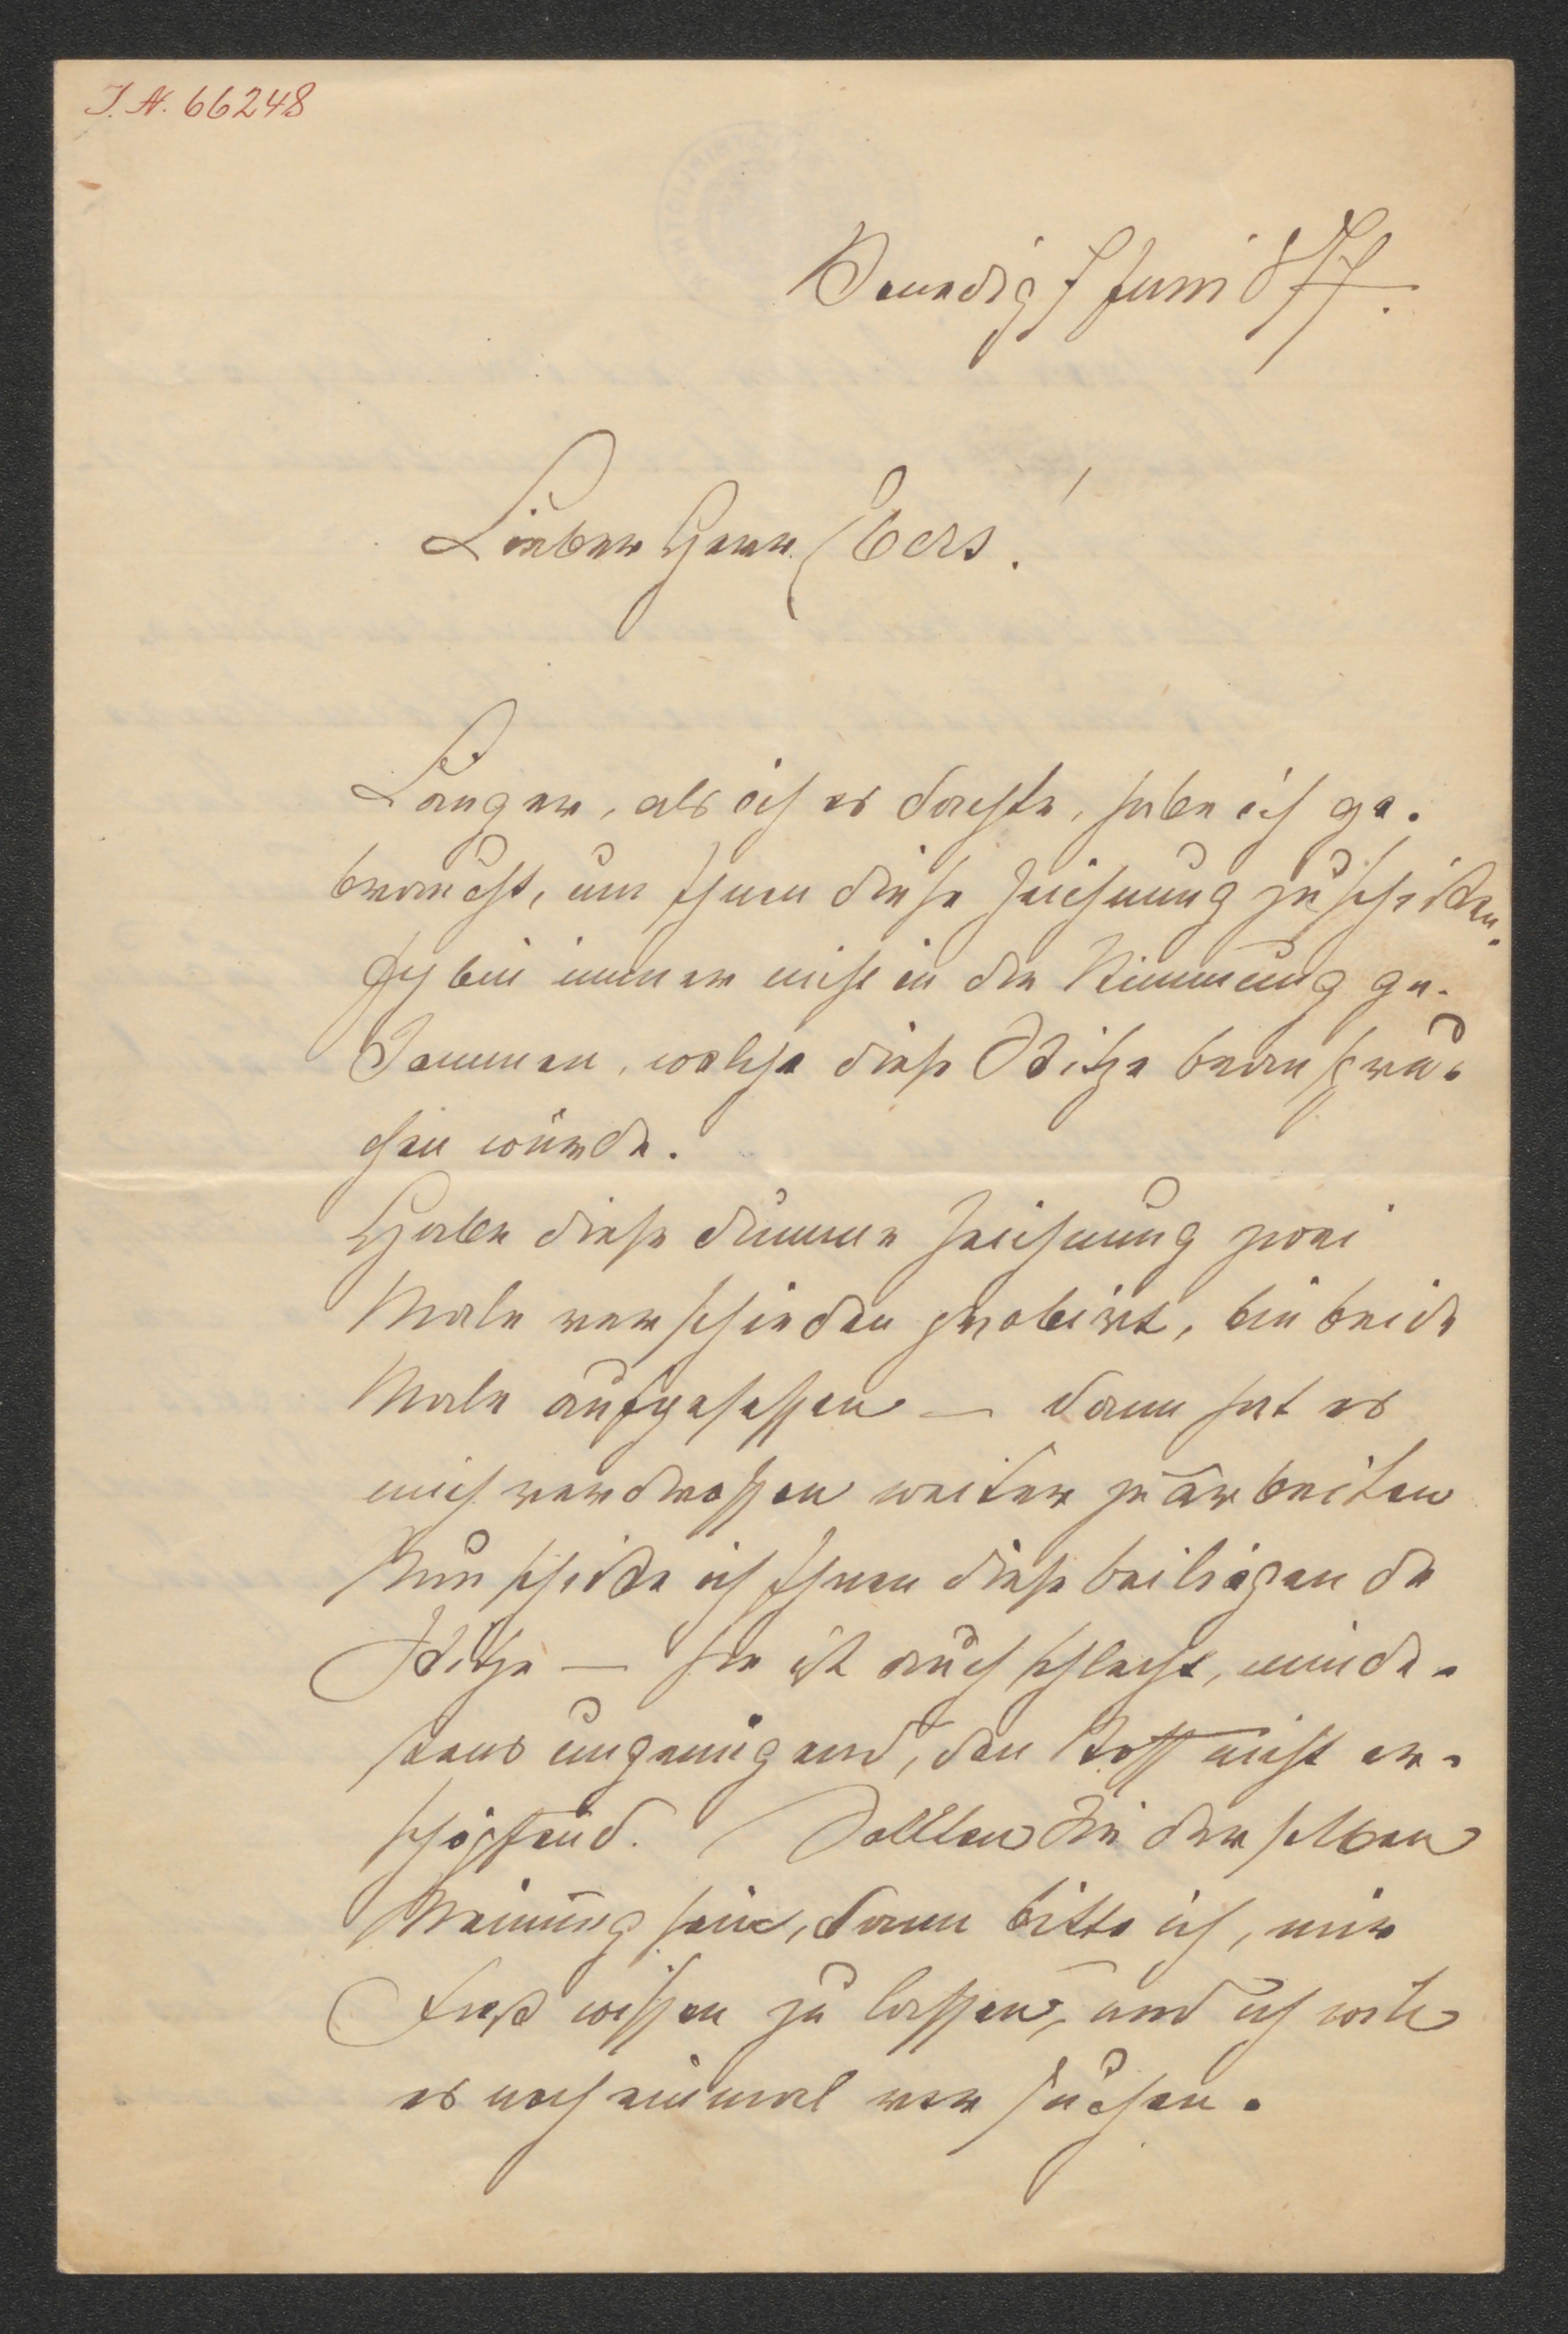 J. N. 66248
Venedig 7 Juni 877.
Lieber Herr Ebers!
Länger, als ich es dachte, habe ich ge-
braucht, um Ihnen diese Zeichnung zu schicken.
Ich bin immer nicht in die Stimmung ge-
kommen, welche diese Skitze beanspru-
chen würde.
Habe diese dumme Zeichnung zwei
Male verschieden probirt, bin beide
Male aufgesessen — dann hat es
mich verdrossen weiter zu arbeiten
Nun schicke ich Ihnen diese beiliegende
Skitze — sie ist auch schlecht, minde-
stens ungenügend, den Stoff nicht er-
schöpfend. Sollten Sie derselben
Meinung sein, dann bitte ich, mir
dieß wissen zu lassen, und ich will
es noch einmal versuchen.